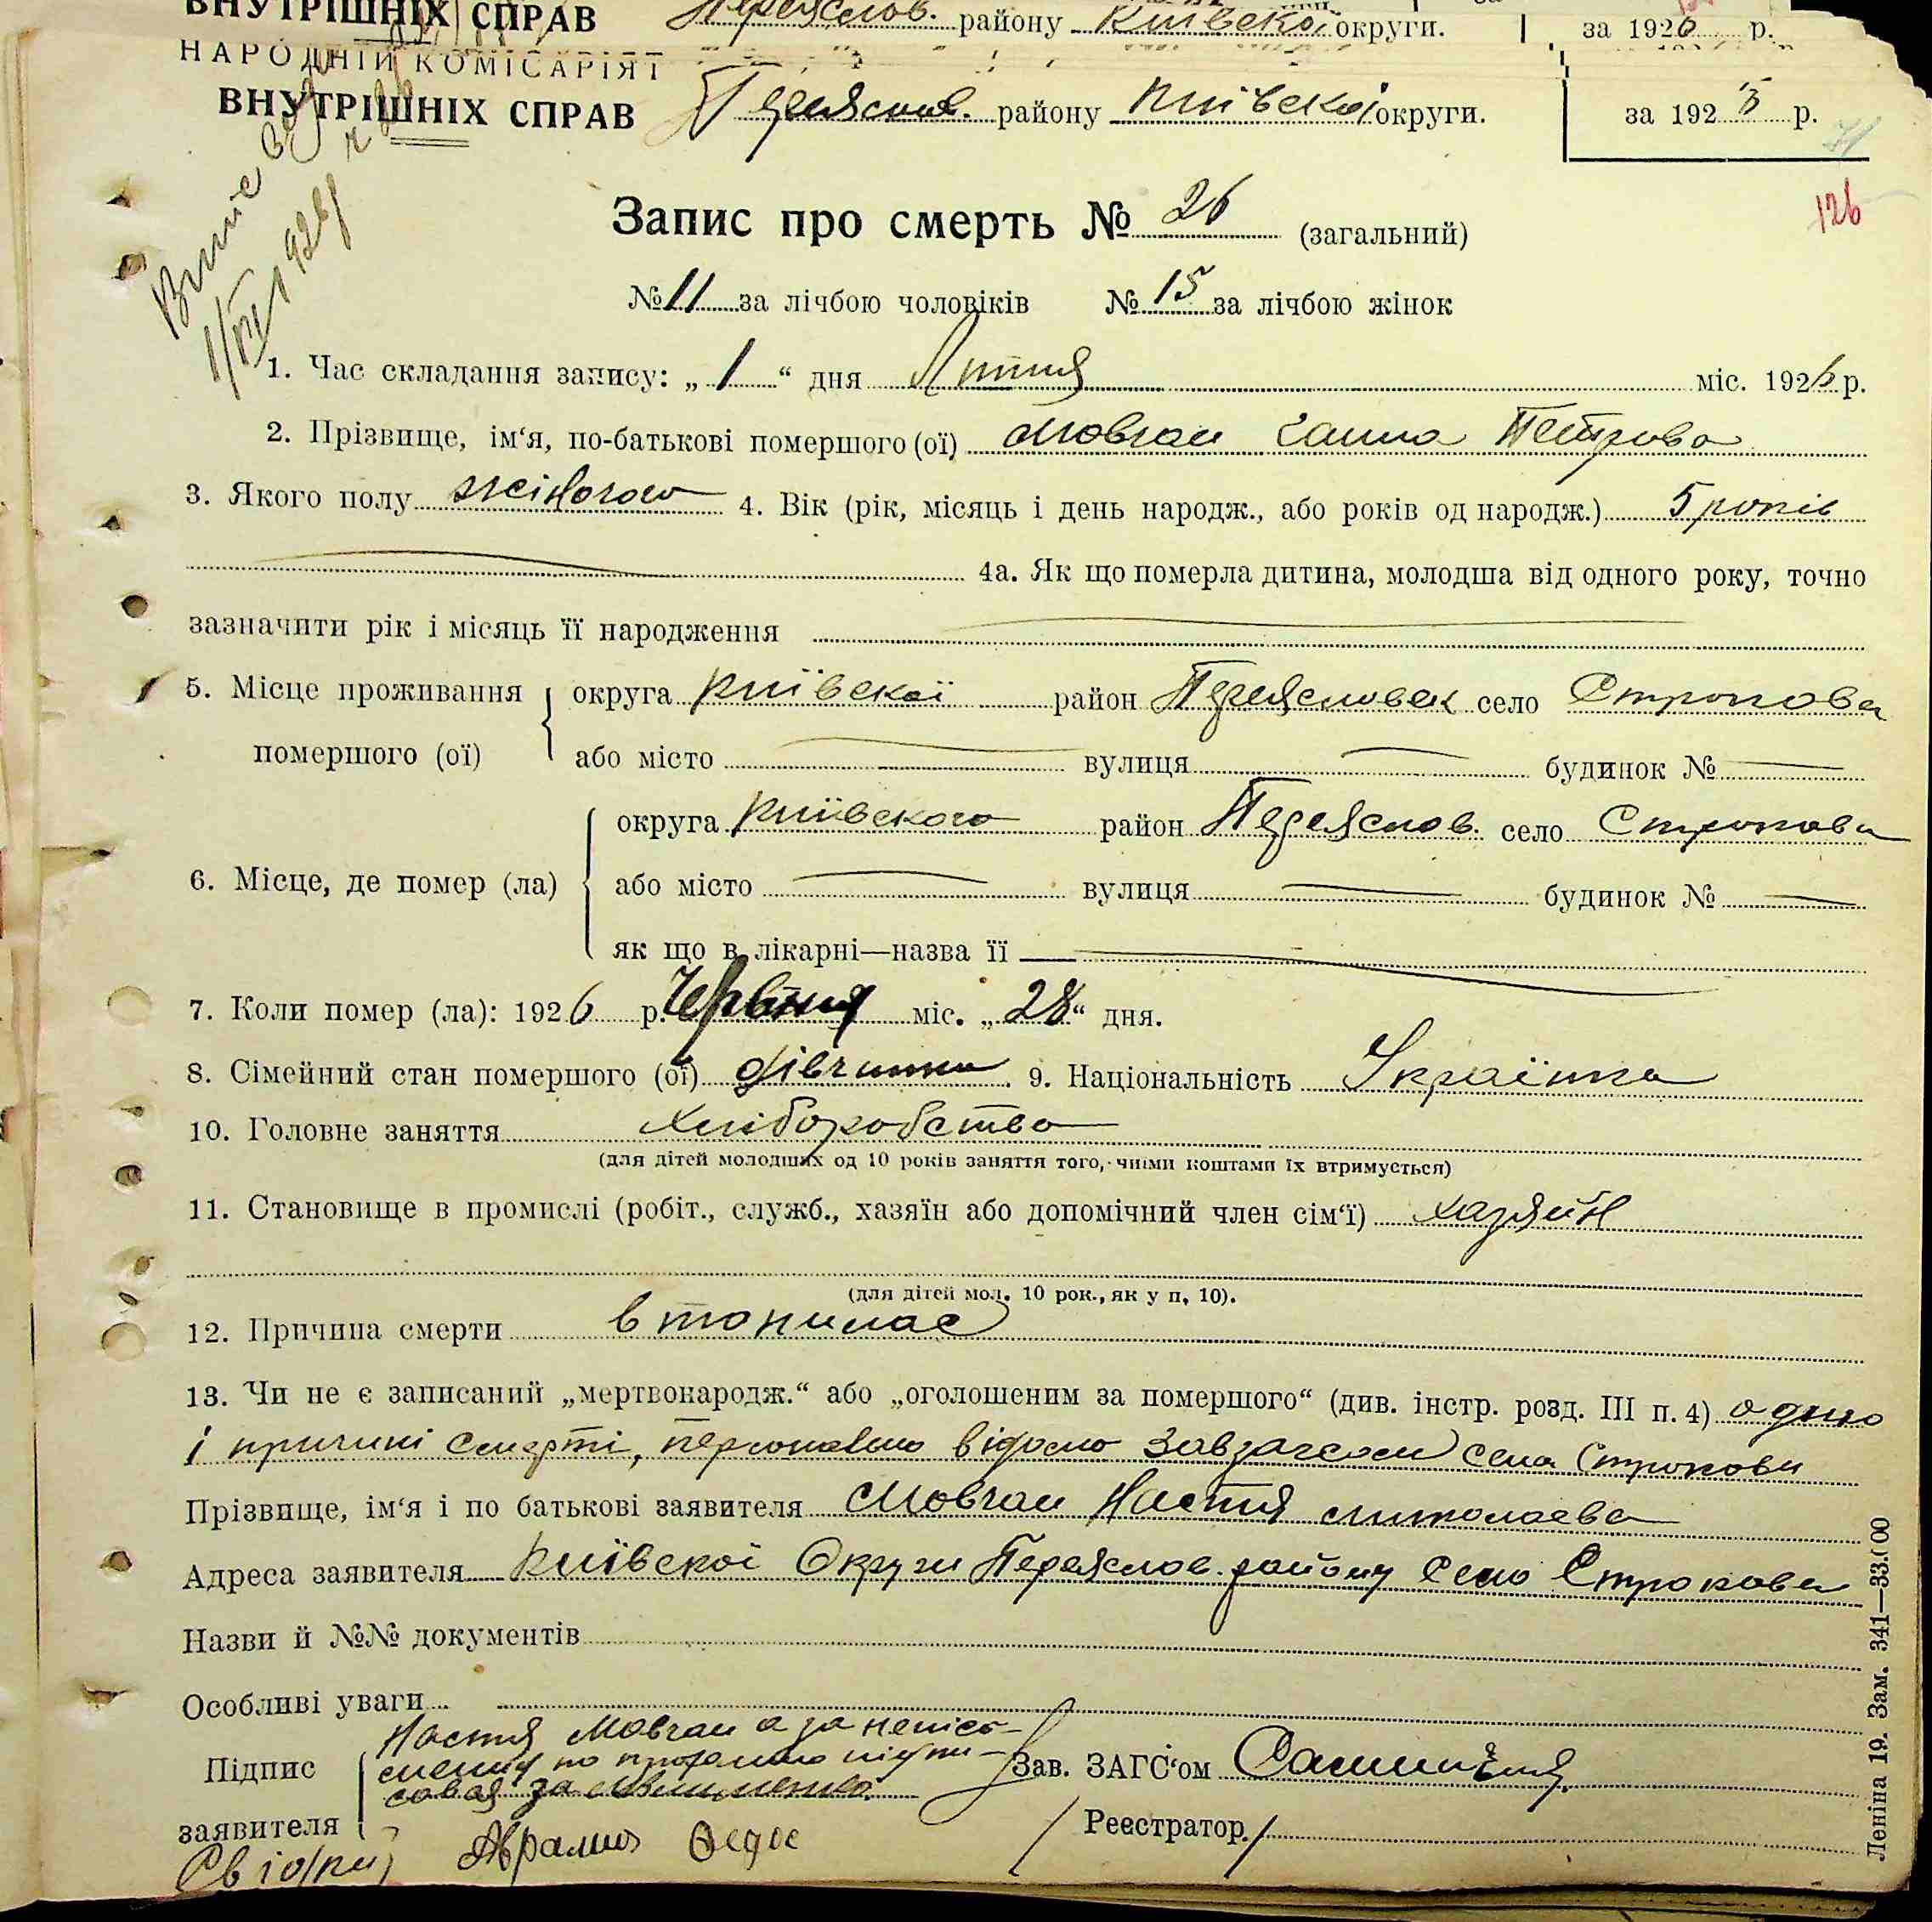 ВНУТРІШНІХ СПРАВ Переяслов. району Київської округи. за 1926 р.
НАРОДНІЙ КОМІСАРІЯТ
ВНУТРІШНІХ СПРАВ Переяслов. району Київської округи. за 192 р.
126
Запис про смерть № 26 (загальний)
№ 11 за лічбою чоловіків № 15 за лічбою жінок
1. Час складання запису: „ 1 “ дня Липня міс. 1926 р.
2. Прізвище, ім‘я, по-батькові помершого (ої) Мовчан Ганна Петрова
3. Якого полу жіночого 4. Вік (рік, місяць і день народж., або років од народж.) 5 років
4а. Як що померла дитина, молодша від одного року, точно
зазначити рік і місяць її народження
5. Місце проживання помершого (ої) округа Київської район Переясловск село Строкова
або місто вулиця будинок №
6. Місце, де помер (ла) округа Київського район Переяслов. село Строкова
або місто вулиця будинок №
як що в лікарні—назва її
7. Коли помер (ла): 1926 р. Червня міс. „ 28 “ дня.
8. Сімейний стан помершого (ої) дівчинка 9. Національність Українка
10. Головне заняття Хліборобство
(для дітей молодших од 10 років заняття того, чиїми коштами їх втримується)
11. Становище в промислі (робіт., служб., хазяїн або допомічний член сім‘ї) хазяйн
(для дітей мол. 10 рок., як у п. 10).
12. Причина смерти втопилас
13. Чи не є записаний „мертвонародж.“ або „оголошеним за помершого“ (див. інстр. розд. III п. 4)
і причині смерті, персонально відомо Завзагсом села Строкови
Прізвище, ім‘я і по батькові заявителя Мовчан Настя Миколаева
Адреса заявителя Київської Округи Переяслов. району Село Строкова
Назви й №№ документів
Особливі уваги
Підпис заявителя Настя Мовчан а за непись-
менну по проханню підпи-
совая за
Зав. ЗАГС‘ом
Реєстратор
Свідки Аврамих
Леніна 19. Зам. 341—33.000